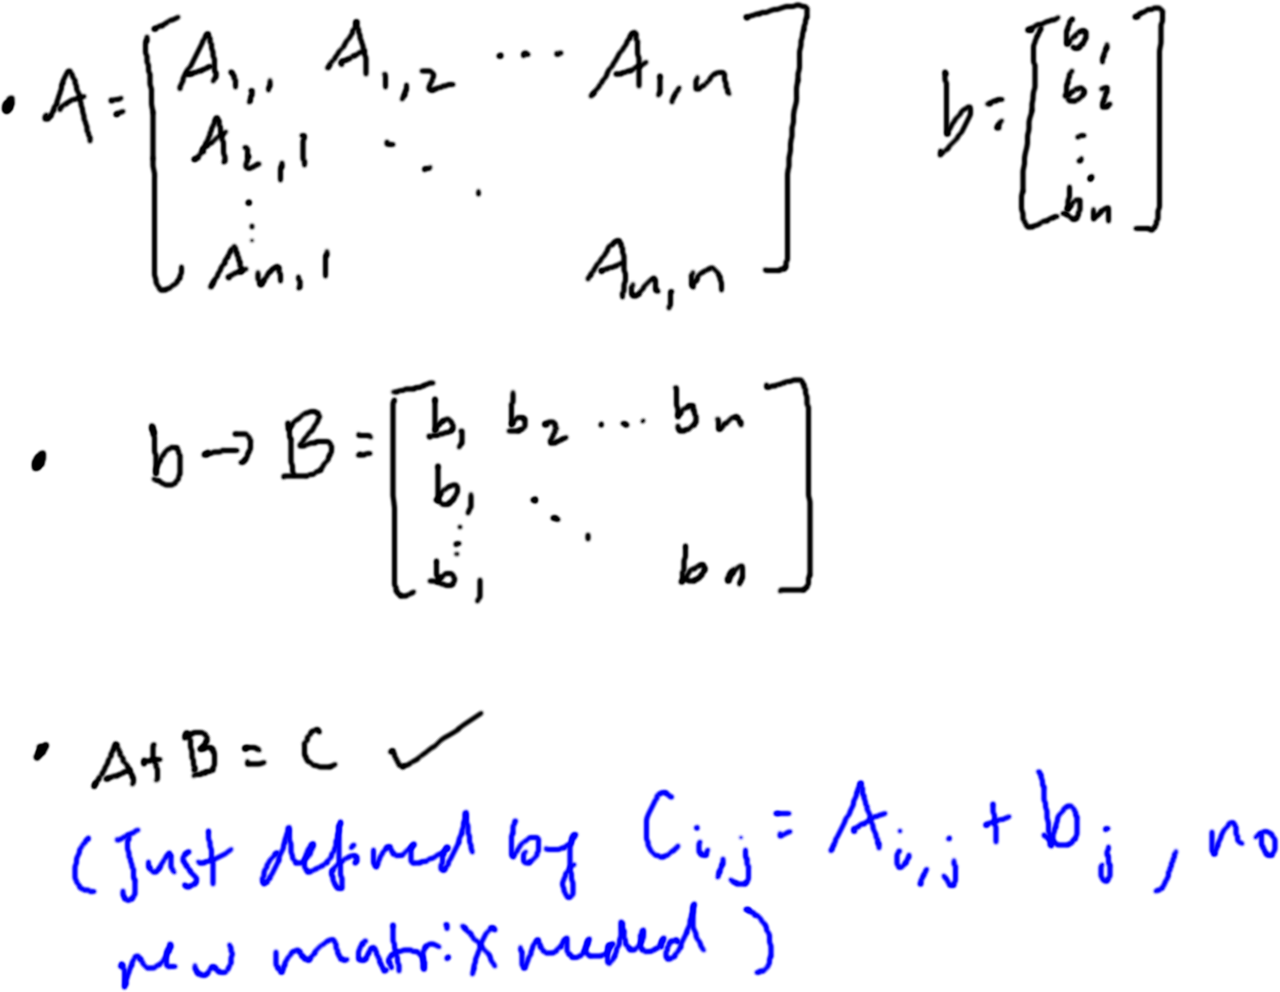 • A = [ A1,1 A1,2 ... A1,n b = [ b1
A2,1 ⋱ b2
⋮ ⋮
An,1 An,n ] bn ]
• b → B = [ b1 b2 ... bn
b1 ⋱
⋮
b1 bn ]
• A + B = C ✓
(Just defined by Ci,j = Ai,j + bj , no
new matrix needed)